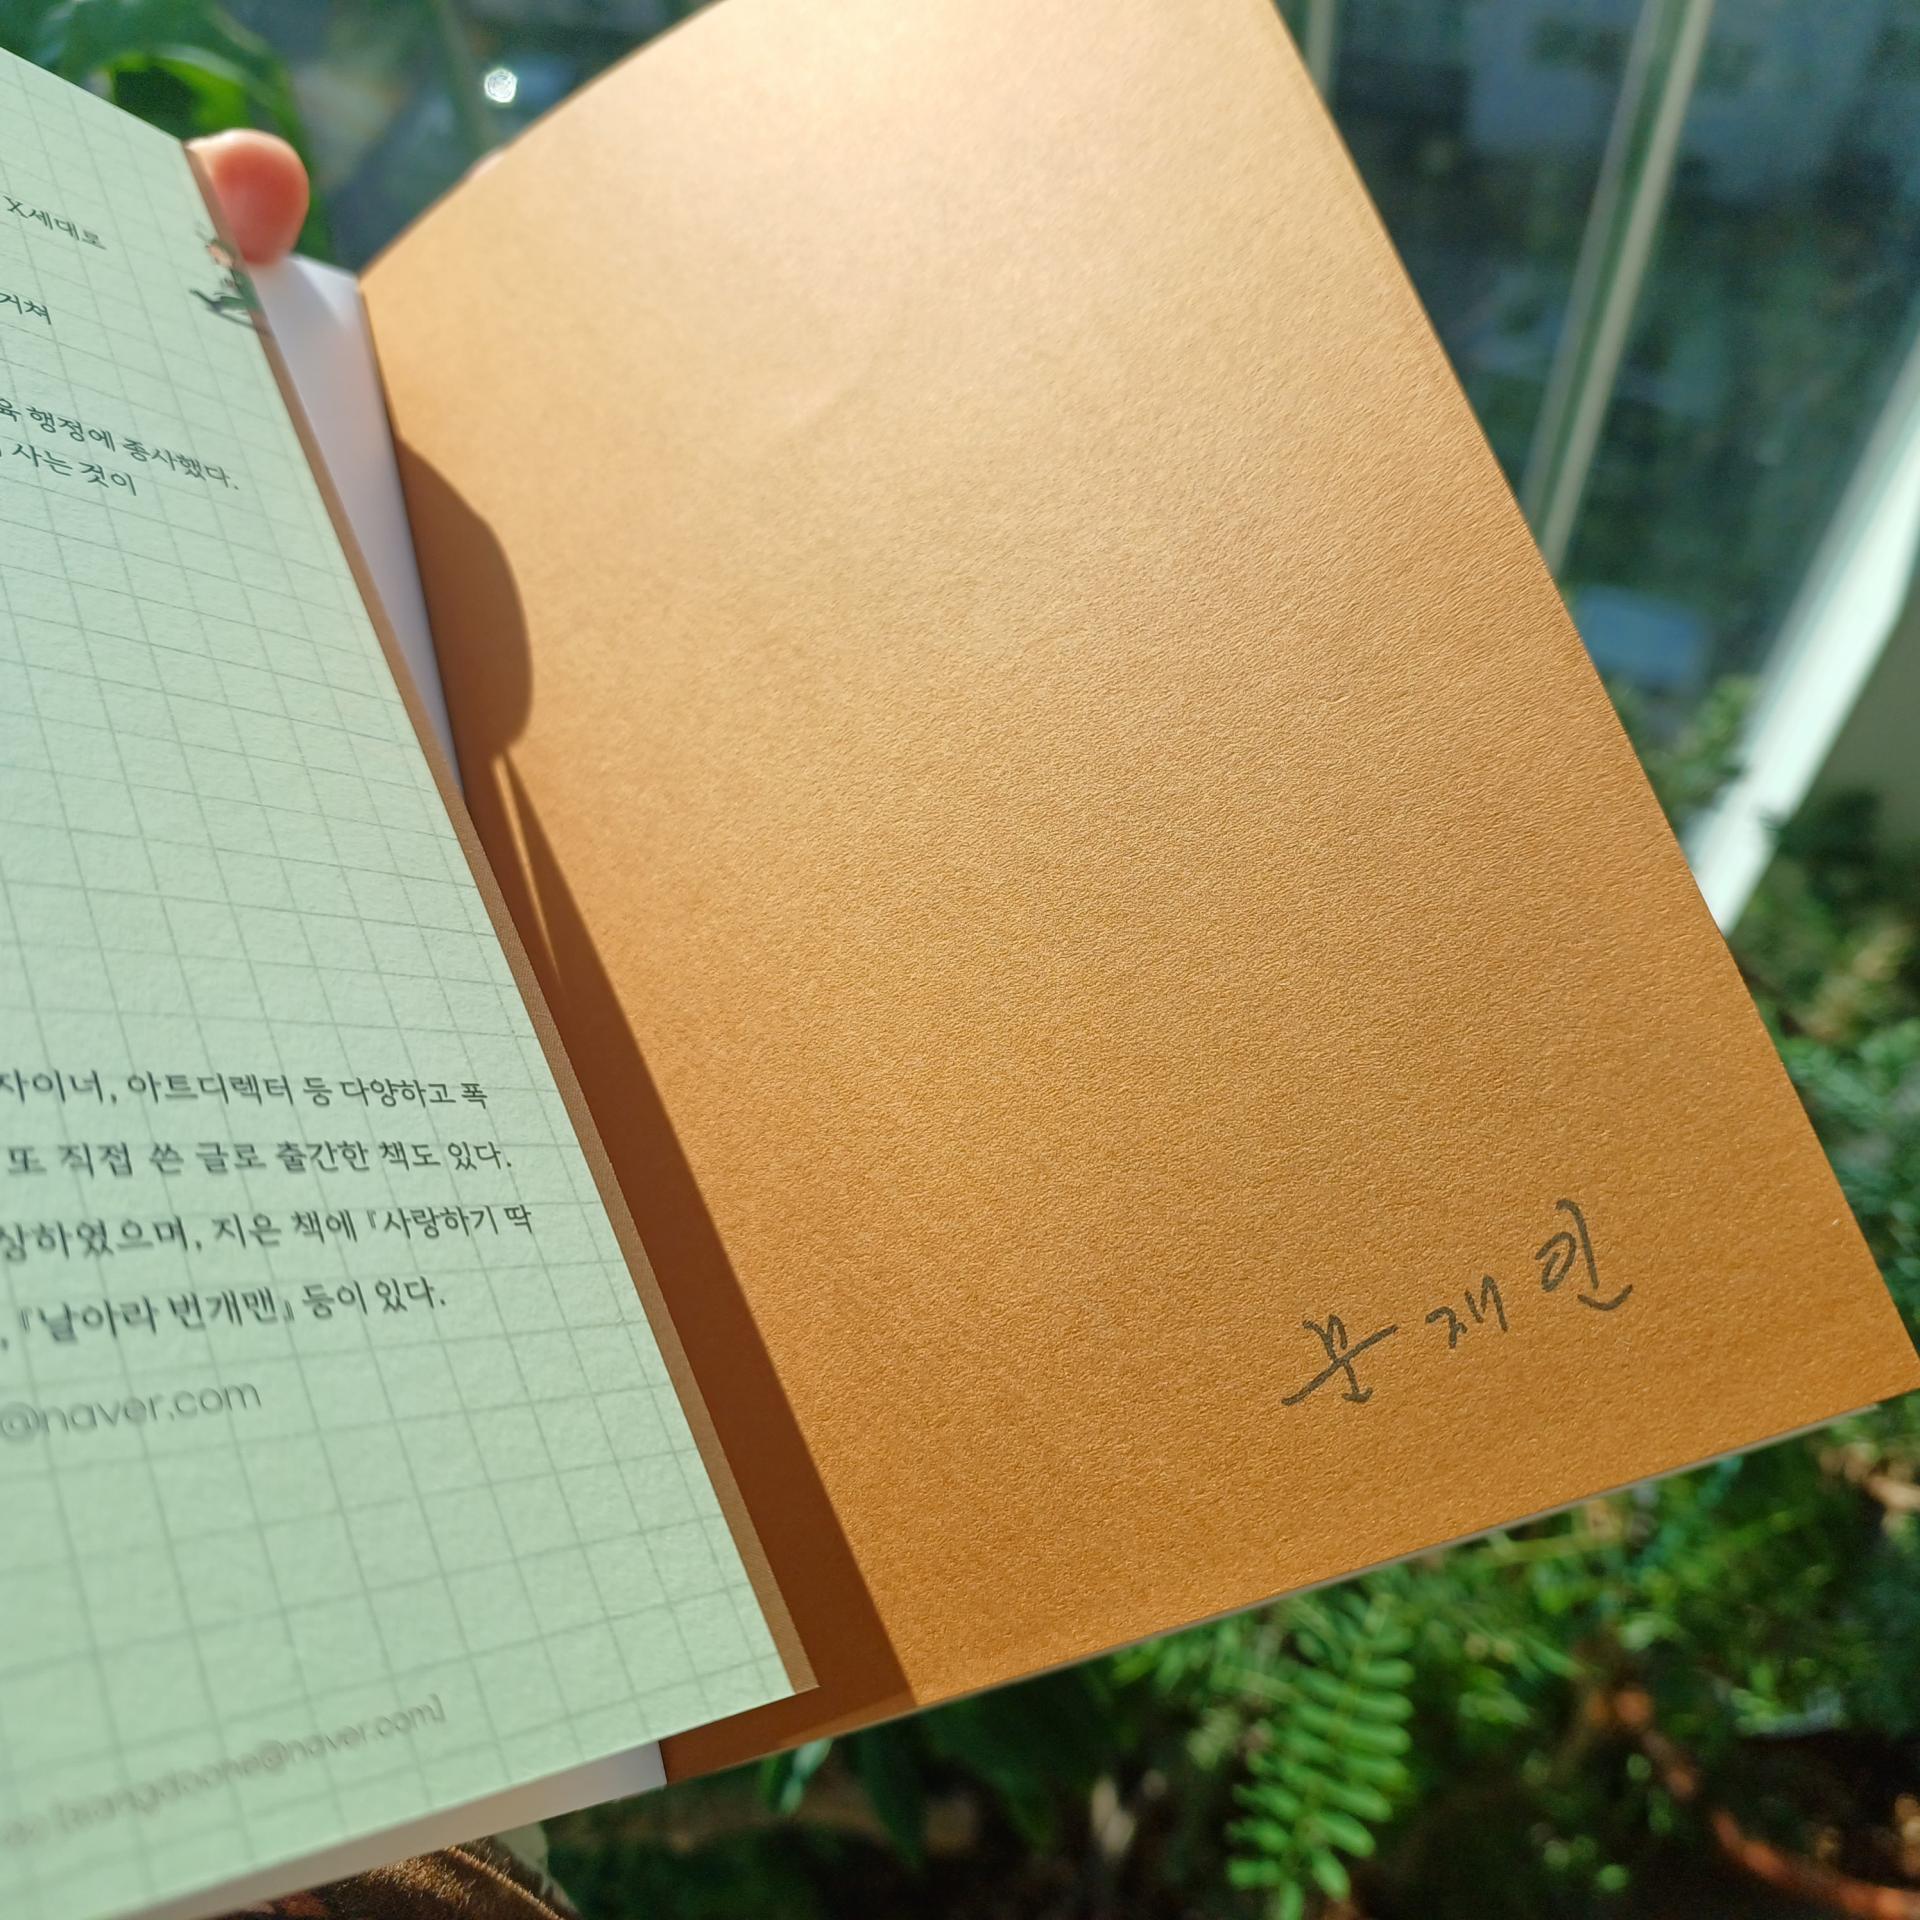 X세대로
거쳐
육 행정에 종사했다.
사는 것이
자이너, 아트디렉터 등 다양하고 폭
또 직접 쓴 글로 출간한 책도 있다.
상하였으며, 지은 책에 『사랑하기 딱
, 『날아라 번개맨』 등이 있다.
@naver.com
@naver.com]
문재인